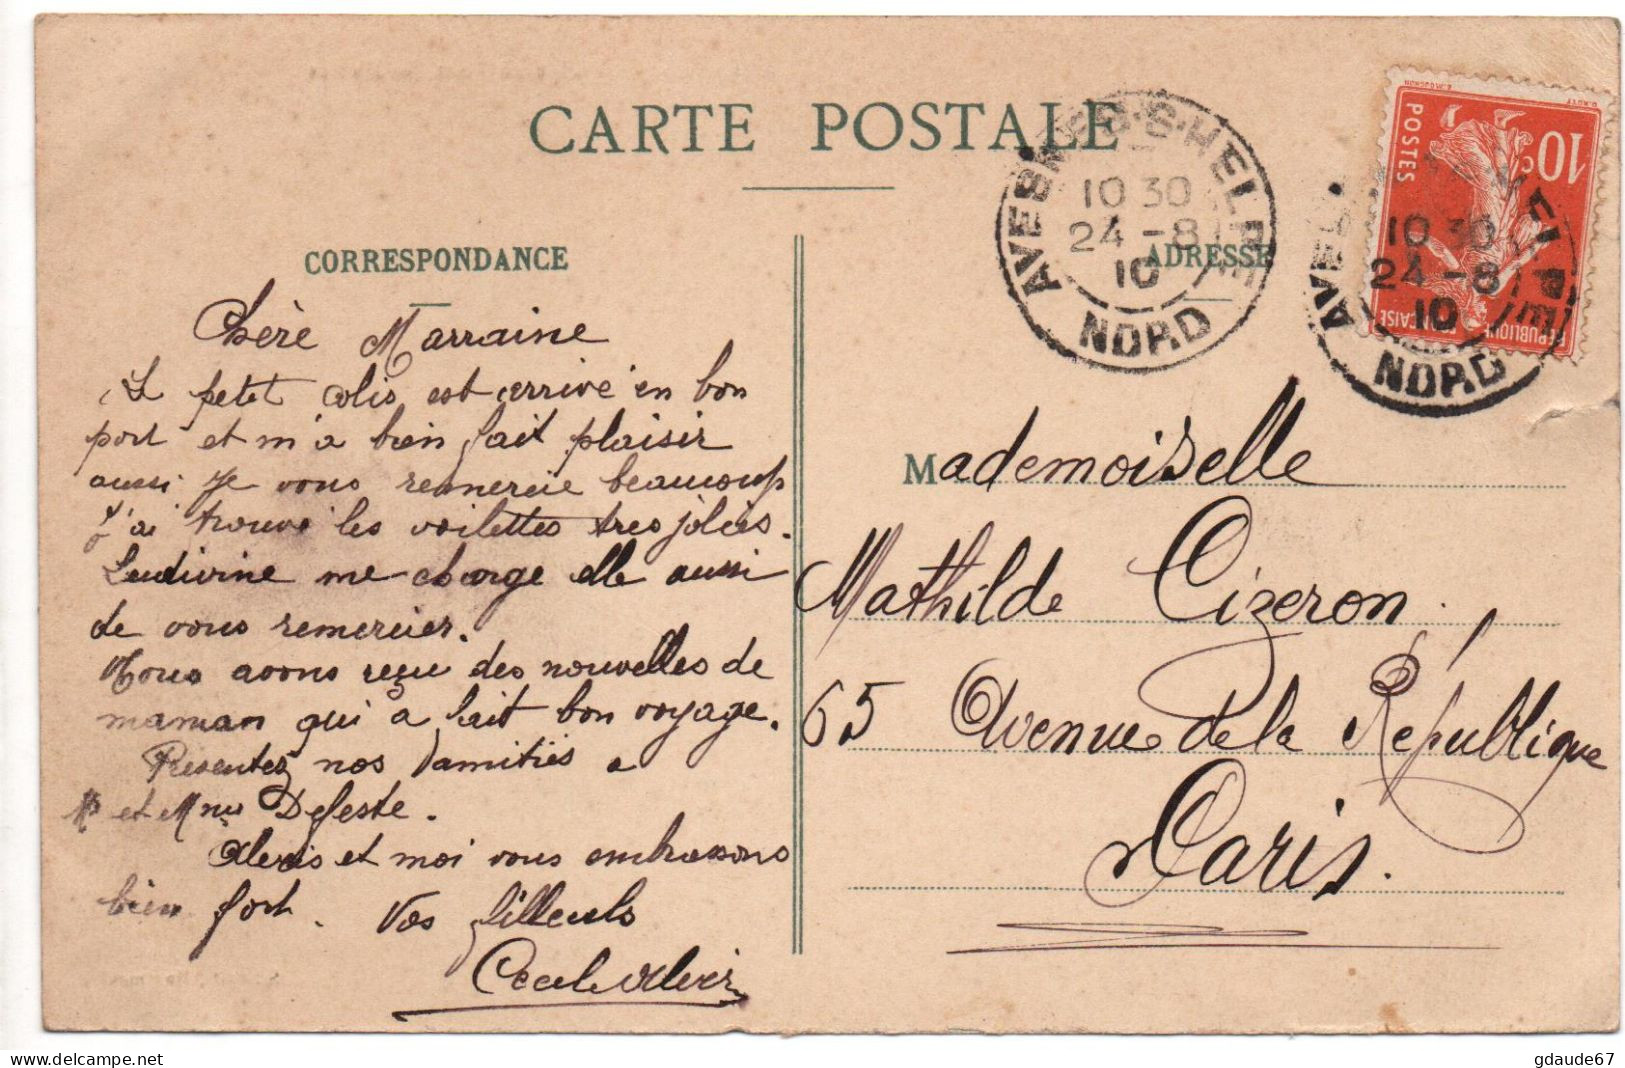 CARTE POSTALE
CORRESPONDANCE
Chère Marraine
Le petit colis est arrivé en bon
port et m'a bien fait plaisir
aussi je vous remercie beaucoup
J'ai trouvé les voilettes tres jolies.
Ludivine me charge elle aussi
de vous remercier.
Nous avons reçu des nouvelles de
maman qui a fait bon voyage.
Présentez nos amitiés a
Mr et Mme Defeste.
Alexis et moi vous embrassons
bien fort. Vos filleuls
Cecile Alexis
AVESNES-S-HELPE
10 30
24 -8
10
NORD
ADRESSE
10c
POSTES
REPUBLIQUE FRANCAISE
AVES HELPE
10 30
24 -8
10
NORD
Mademoiselle
Mathilde Cizeron
65 Avenue de la République
Paris.
www.delcampe.net
gdaude67